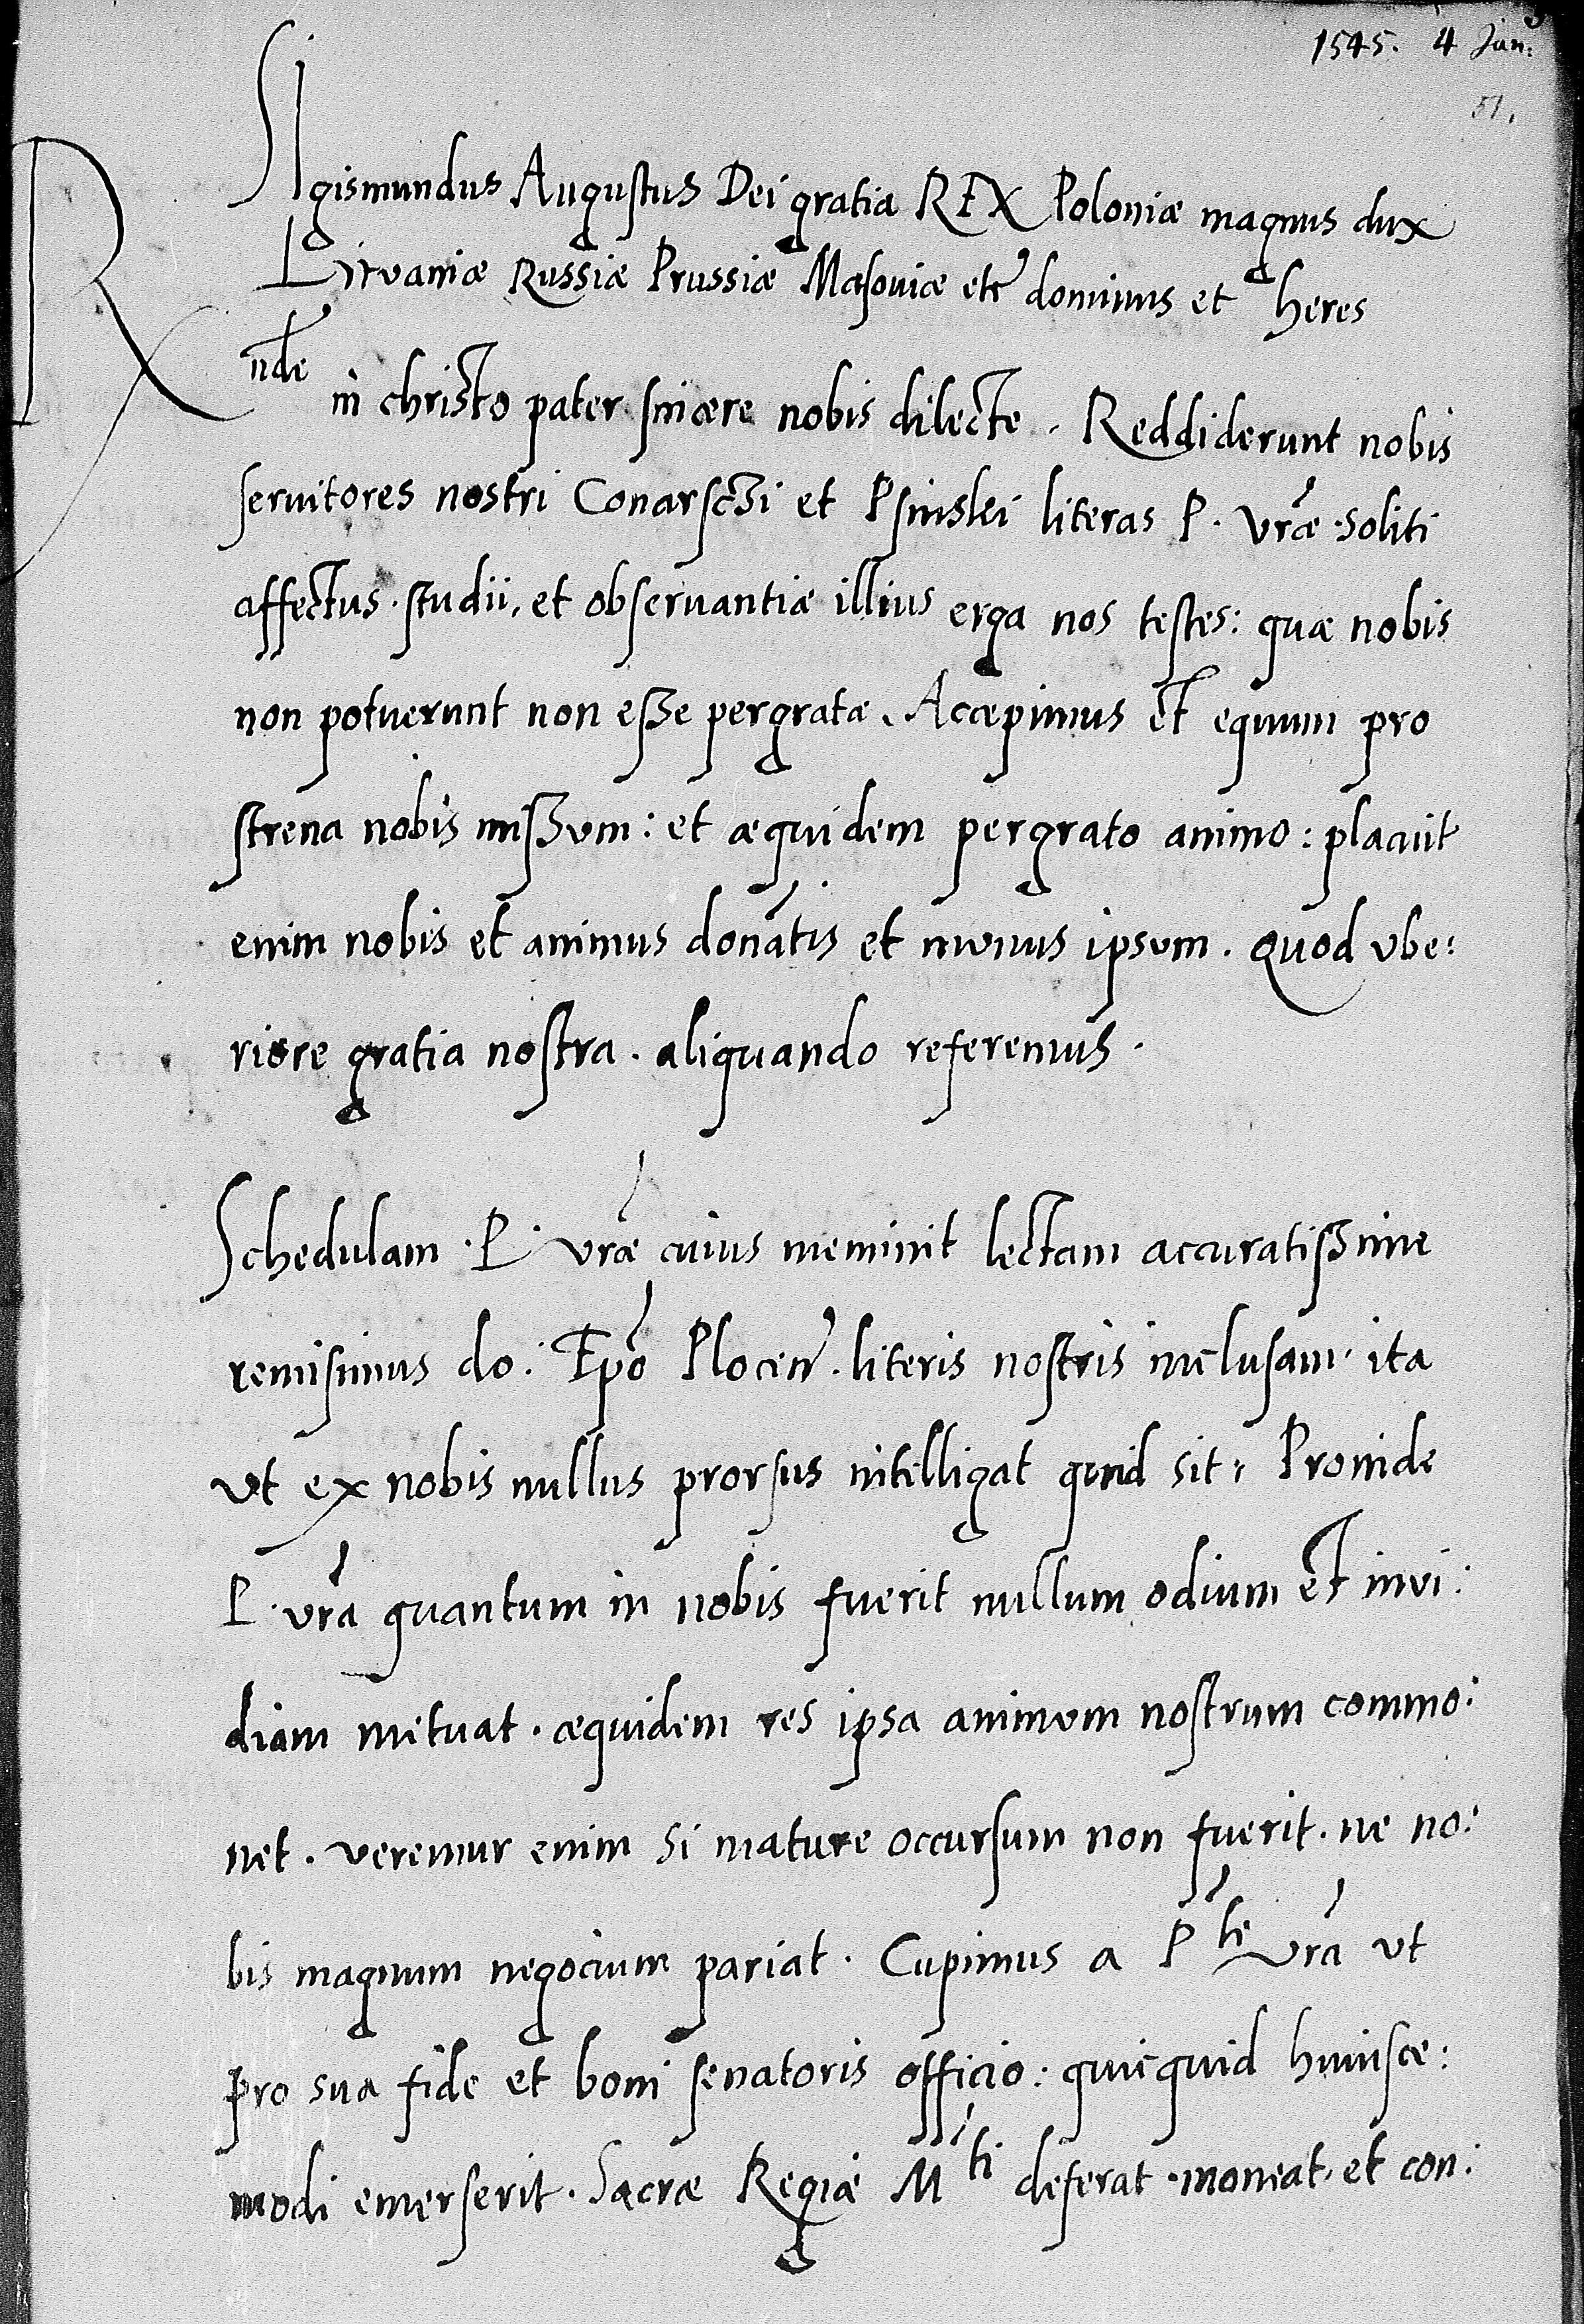 1545. 4 Jan:
51.
SIgismundus Augustus Dei gratia REX Poloniæ magnus dux
Lituaniæ Russiæ Prussiæ Masouiæ etc dominus et heres
Rnde in christo pater sincere nobis dilecte. Reddiderunt nobis
seruitores nostri Conarsczi et Psinski literas P. vrae soliti
affectus. studii, et obseruantiæ illius erga nos testes: quæ nobis
non potuerunt non esse pergratæ. Accepimus et equum pro
strena nobis missum: et æquidem pergrato animo: placuit
enim nobis et animus donatis et munus ipsum. Quod vbe:
riore gratia nostra. aliquando referemus.
Schedulam. P. vræ cuius meminit lectam accuratissime
remisimus do. Epo Plocen. literis nostris inclusam. ita
vt ex nobis nullus prorsus intelligat quid sit. Proinde
P. vra quantum in nobis fuerit nullum odium et inui:
diam metuat. æquidem res ipsa animum nostrum commo:
uet. veremur enim si mature occursum non fuerit. ne no:
bis magnum negocium pariat. Cupimus a P te vra vt
pro sua fide et boni senatoris officio: quicquid huiusce:
modi emerserit. Sacræ Regiæ M ti deferat. moneat. et con: